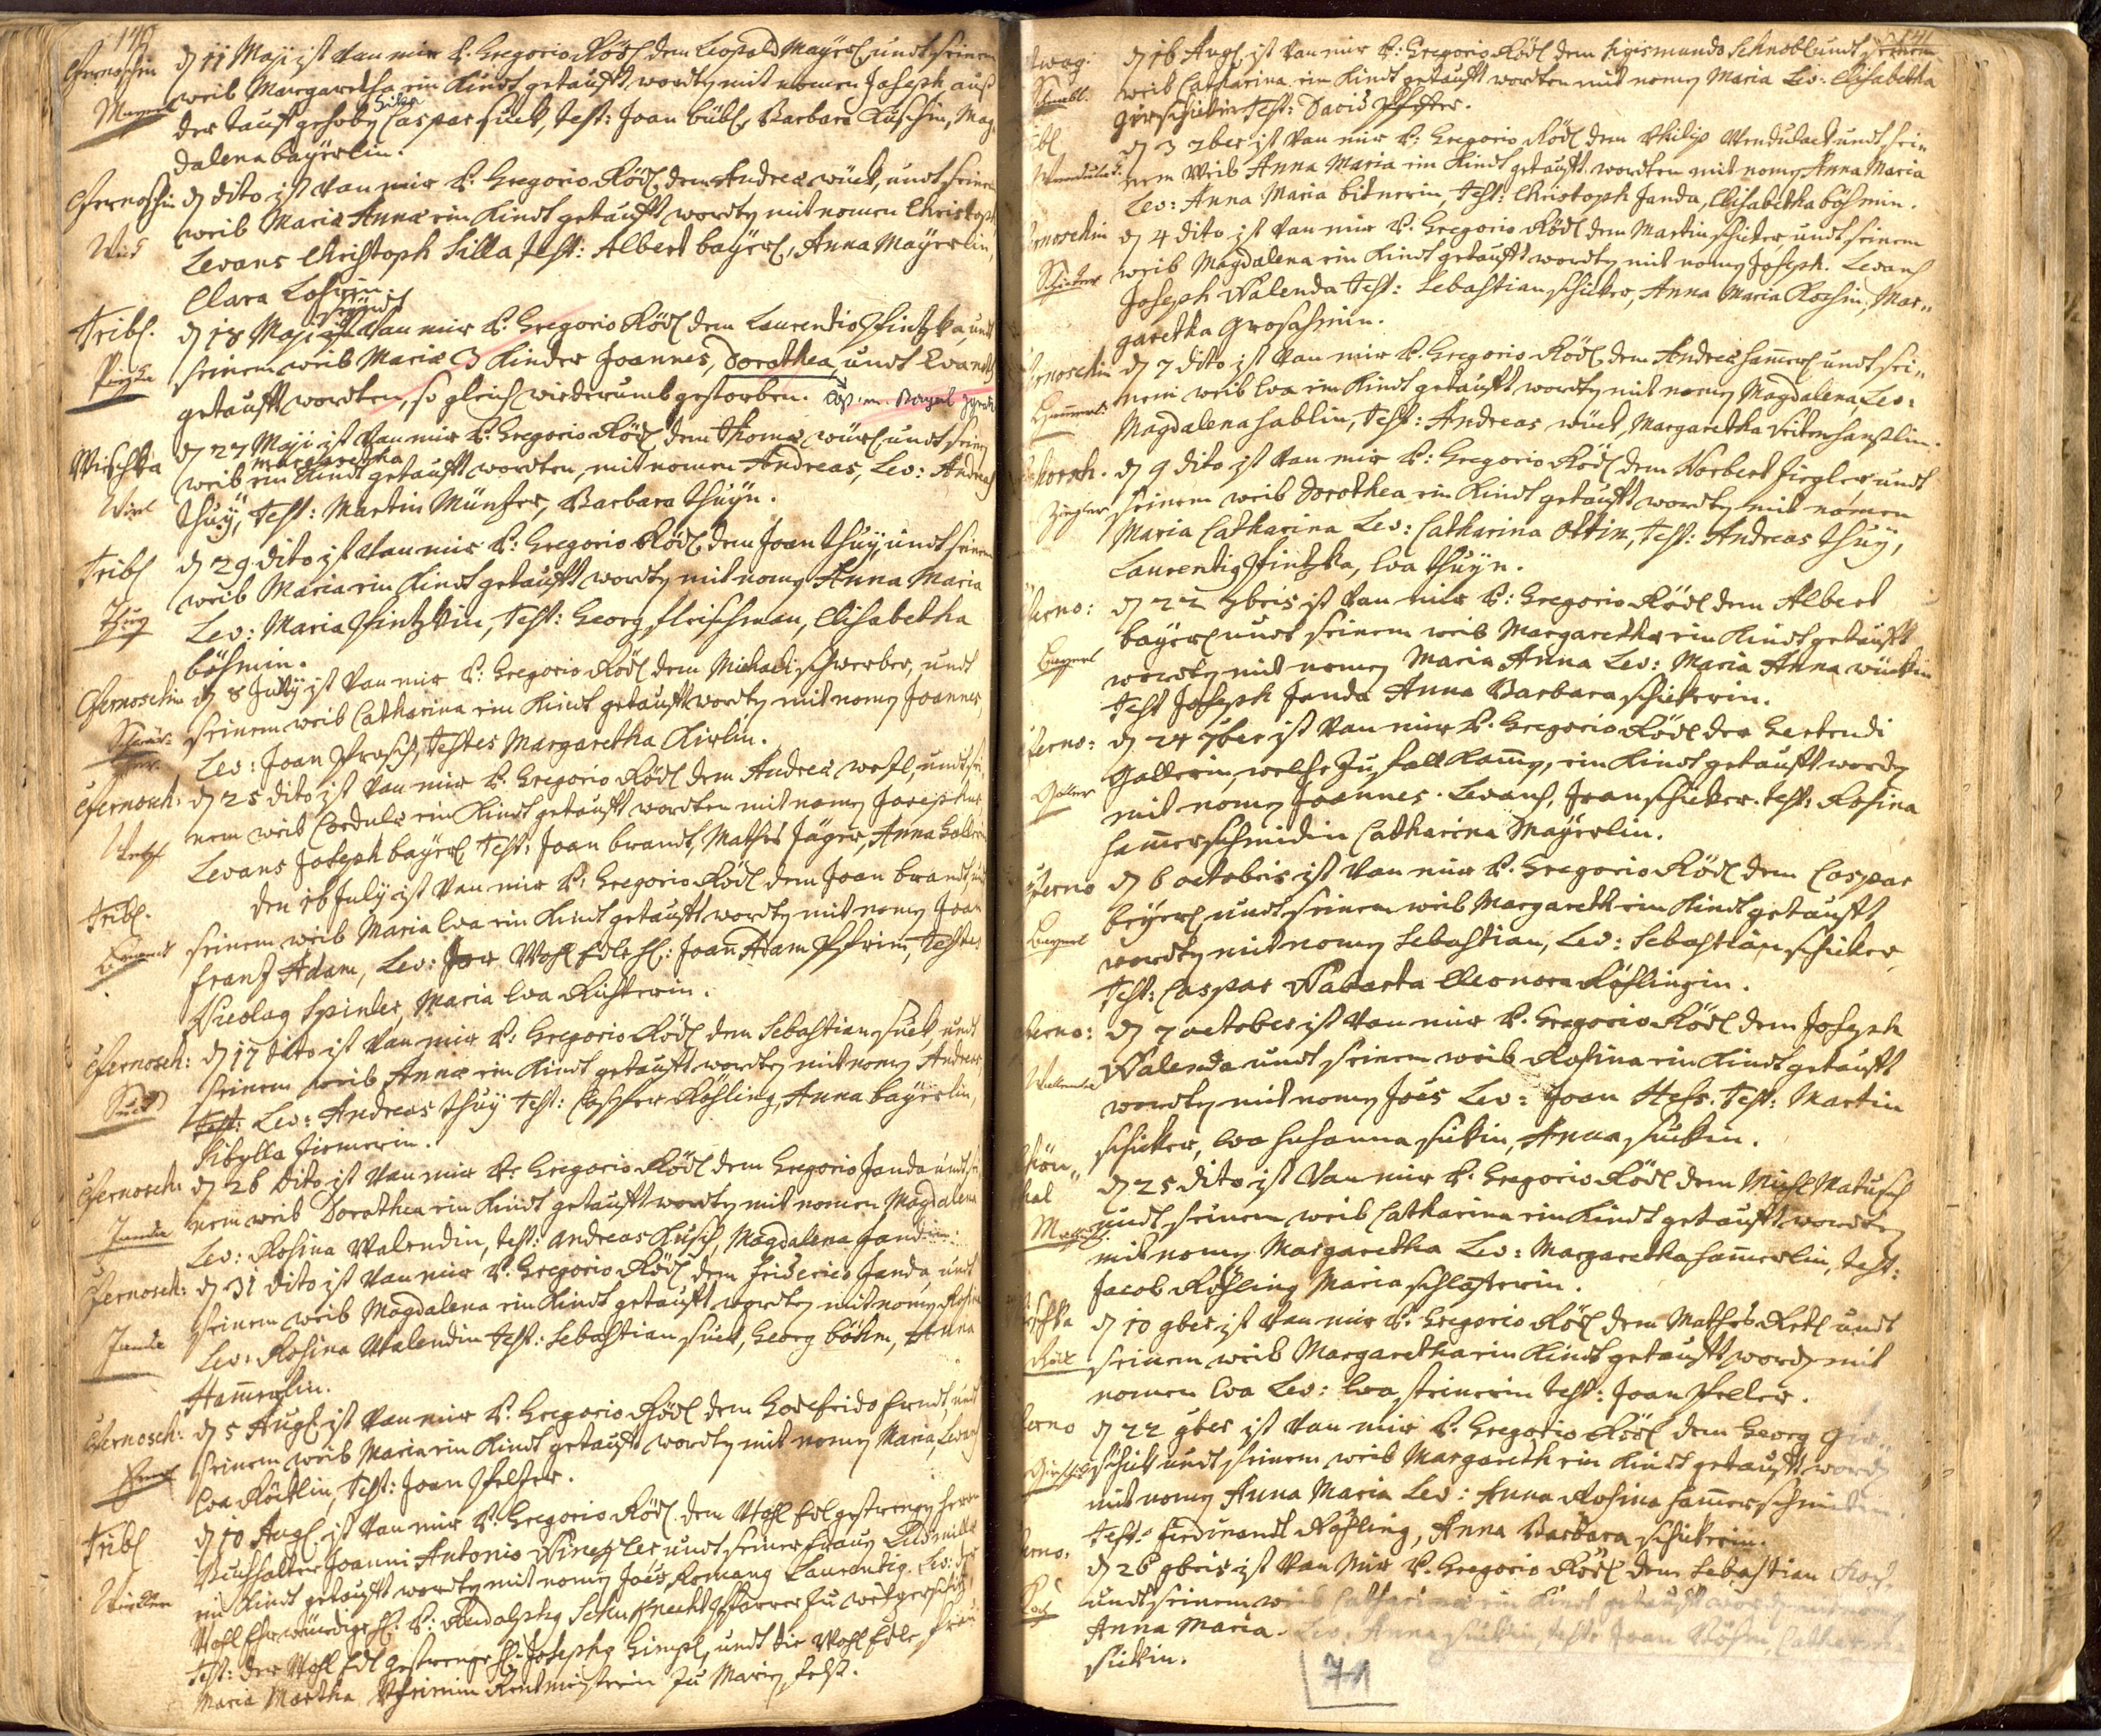 140
Czernoschin d 11 Maji ist Van mir P. Gregorio Rödl dem Leopold Mayerl undt seinem
weib Margaretha ein Kindt getaufft wordty mit nomen Joseph auß
Mayerl der tauff gehoby Caspar suck, test: Joan bübl, Barbara Kuschin, Mag
dalena bayerlin.
Czernoschin d dito ist Van mir P. Gregorio Rödl dem Andrea wück, undt seinem
weib Maria Anna ein Kindt getaufft wordty mit nomen Christoph
Wück Levans Christoph Silla, test: Albert bayerl, Anna Mayerlin,
Clara
Tribl. d 18 Maji Van mir P. Gregorio Rödl dem Laurentio Pfintzka, undt
seinem weib Maria 3 Kinder Joannes, Dorothea, undt Eva
getaufft wordten, so gleich wiederumb gestorben.
Wischka d 27 Maji ist Van mir P. Gregorio Rödl dem Thoma würl, undt seiny
margaretha
weib ein Kindt getaufft wordten, mit nomen Andreas, Lev: Andreas
Wirl thuÿ, Test: Martin Müntzer, Barbara thuÿn.
Tribl d 29 dito ist Van mir P: Gregorio Rödl dem Joan thuÿ undt seinem
weib Maria ein Kindt getaufft wordty mit nomy Anna Maria
Thuy Lev: Maria Pfintzkin, Test: Georg fleischman, Elisabetha
böhmin.
Czernoschin d 8 July ist Van mir P: Gregorio Rödl dem Michaeli schwerber, undt
seinem weib Catharina ein Kindt getaufft wordty mit nomy Joannes,
Lev: Joan Prosch, Testes Margaretha Kirlin.
Czernosch: d 25 dito ist Van mir P. Gregorio Rödl dem Andrea wetzl, undt sei
nem weib Cordula ein Kindt getaufft wordten mit nomy Josephus
Levans Joseph bayerl Test: Joan brandt, Mathes Jäger, Anna
Tribl. den 16 July ist Van mir P: Gregorio Rödl dem Joan brandt, undt
Brandt seinem weib Maria Eva ein Kindt getaufft wordty mit nomy Joan
frantz Adam, Lev: Wohl Edle H: Joan Adam Pfrim, Testes
Nicolag Spinler, Maria Eva Richterin.
Czernosch: d 17 dito ist Van mir P: Gregorio Rödl dem Sebastian suck, undt
seinem weib Anna ein Kindt getaufft wordty mit nomy Andreas,
Suck Test: Lev: Andreas thuÿ Test: Casper Röhling, Anna bayerlin,
Sibylla
Czernosch: d 26 dito ist Van mir P: Gregorio Rödl dem Gregorio Janda undt sei
nem weib Dorothea ein Kindt getaufft wordty mit nomen Magdalena
Janda Lev: Rosina Walendin, test: andreas Kusch, Magdalena Jandin.
Czernosch: d 31 dito ist Van mir P. Gregorio Rödl dem friderico Janda, undt
seinem weib Magdalena ein Kindt getaufft wordty mit nomy Rosina
Janda Lev: Rosina Walendin Test: Sebastian suck, Georg böhm, Anna
Ham̃erlin.
Czernosch: d 5 Augl ist Van mir P. Gregorio Rödl dem Godefrido, undt
seinem weib Maria ein Kindt getaufft wordty mit nomy Maria, Levans
Eva Röitlin, Test: Joan
Tribl d 10 Augl ist Van mir P. Gregorio Rödl dem Wohl Edl gestrengy herrn
Buchhalter Joanni Antonio undt seiner frauy Ludmilla
ein Kindt getaufft wordty mit nomy Joes Romang Laurentig. Lev: der
Wohl Ehrwürdige H: P: Rudolphg Schuknecht Pfarrer zu
Test: der Wohl Edl gestrenge H: Josephg Gimpl, undt die Wohl Edle frau
Maria Martha Rentmeisterin zu

141
d 16 Augl ist Van mir P: Gregorio Rödl dem Sigismundo Schnobl undt seinem
Schnobl. weib Catharina ein Kindt getaufft wordten mit nomy Maria Lev: Elisabetha
Girschikin Test: David
d 3 7ber ist Van mir P: Gregorio Rödl dem Philip Wendulack undt sein
nem Weib Anna Maria ein Kindt getaufft wordten mit nomy Anna Maria
Lev: Anna Maria bitnerin, Test: Christoph Janda, Elisabetha böhmin.
d 4 dito ist Van mir P. Gregorio Rödl dem Martin schicker, undt seinem
Schicker weib Magdalena ein Kindt getaufft wordty mit nomy Joseph. Levans
Joseph Walenda Test: Sebastian schicker, Anna Maria Kochin, Mar„
garetha
d 7 dito ist Van mir P. Gregorio Rödl dem Andrea ham̃erl undt sei„
nem weib Eva ein Kindt getaufft wordty mit nomy Magdalena, Lev:
Magdalena hablin, Test: Andreas wück, Margaretha
d 9 dito ist Van mir P: Gregorio Rödl dem Norbert Ziegler undt
Ziegler seinem weib Dorothea ein Kindt getaufft wordty mit nomen
Maria Catharina Lev: Catharina Ottin, Test: Andreas thuÿ,
Laurentig Pfintzka, Eva thuÿn.
d 22 7bris ist Van mir P: Gregorio Rödl dem Albert
bayerl undt seinem weib Margaretha ein Kindt getaufft
Bayerl wordty mit nomy Maria Anna Lev: Maria Anna wückin
Test Joseph Janda Anna Barbara schickerin.
d 24 7ber ist Van mir P. Gregorio Rödl der Gertrudi
Gallerin, welche zu fall Kom̃y, ein Kindt getaufft wordy
Galler mit nomy Joannes. Levans, Joan schicker. test: Rosina
ham̃erschmidin Catharina Mayerlin.
d 6 octobris ist Van mir P. Gregorio Rödl dem Caspar
beÿerl undt seinem weib Margareth ein Kindt getaufft
Bayerl wordty mit nomy Sebastian, Lev: Sebastian schicker,
Test: Caspar Eleonora Röhlingin.
d 7 october ist Van mir P. Gregorio Rödl dem Joseph
Walenda Walenda undt seinem weib Rosina ein Kindt getaufft
wordty mit nomy Joes Lev: Joan Hess. Test: Martin
schicker, Eva Susanna suckin, Anna suckin.
d 25 dito ist Van mir P. Gregorio Rödl dem Michl Matusch
undt seinem weib Catharina ein Kindt getaufft wordty
mit nomy Margaretha Lev: Margaretha ham̃erlin, test:
Jacob Röhling Maria
d 10 9ber ist Van mir P. Gregorio Rödl dem Mathes undt
seinem weib Margaretha ein Kindt getaufft wordy mit
nomen Eva Lev: Eva steinerin Test: Joan
d 22 9ber ist Van mir P. Gregorio Rödl dem Georg Gir„
schik undt seinem weib Margareth ein Kindt getaufft wordy
mit nomy Anna Maria Lev: Anna Rosina ham̃erschmidin.
Test: Ferdinandt Röhling, Anna Barbara schickerin.
d 26 9bris ist Van Mir P. Gregorio Rödl dem Sebastian Koch
undt seinem weib Catharina ein Kindt getaufft wordy mit nomy
Anna Maria. Lev: Anna suckin, test: Joan Böhm, Catharina
suckin.
71